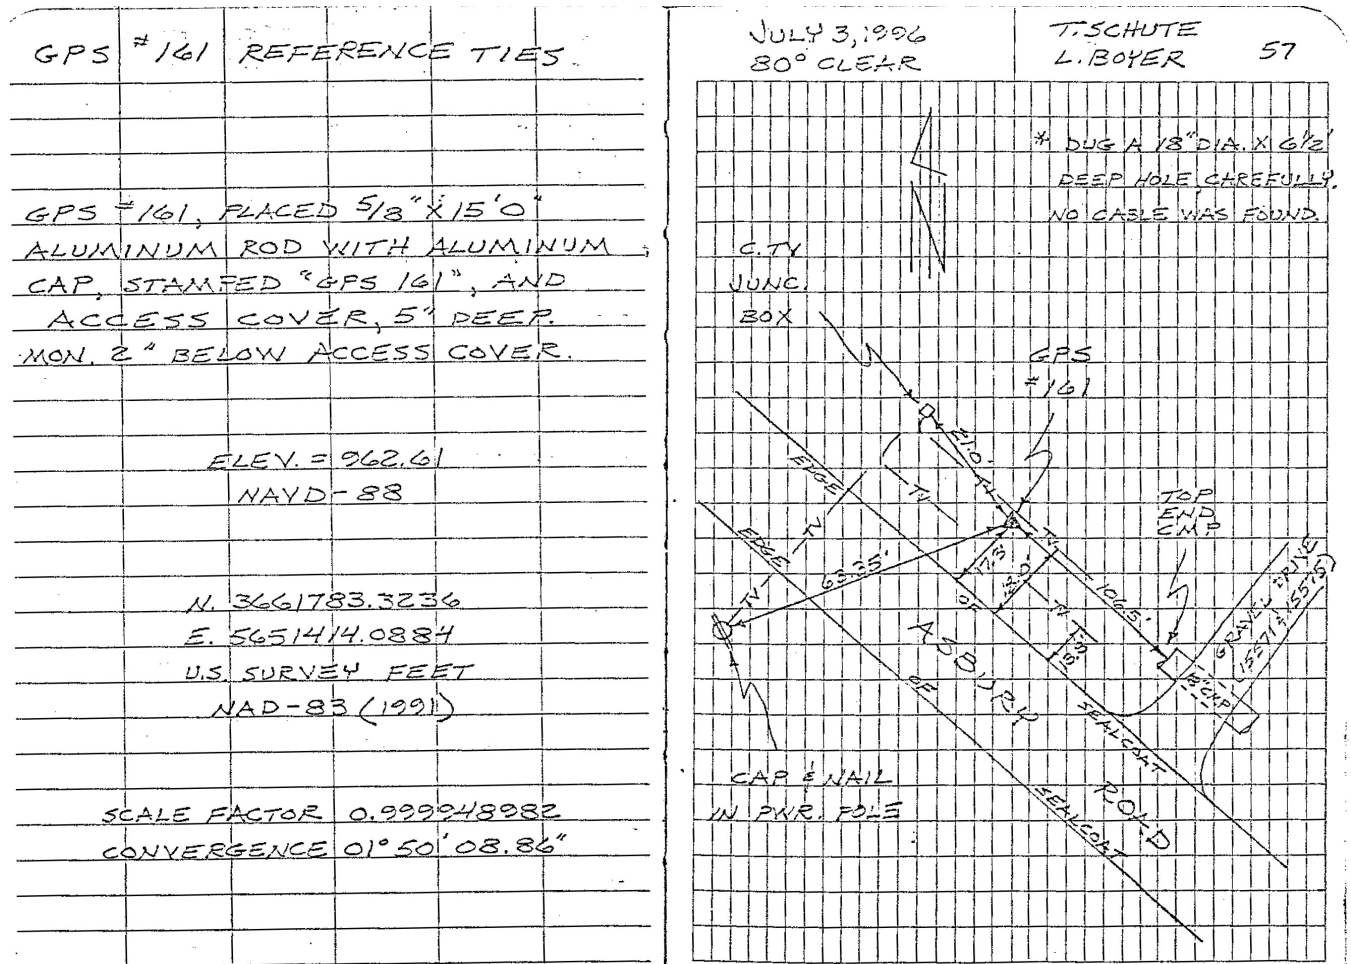 GPS #161 REFERENCE TIES
GPS #161, PLACED 5/8" X 15'0"
ALUMINUM ROD WITH ALUMINUM
CAP, STAMPED "GPS 161", AND
ACCESS COVER, 5" DEEP.
MON. 2" BELOW ACCESS COVER.
ELEV. = 962.61
NAVD-88
N. 3661783.3236
E. 5651414.0884
U.S. SURVEY FEET
NAD-83 (1991)
SCALE FACTOR 0.999948982
CONVERGENCE 01° 50' 08.86"
JULY 3, 1996
80° CLEAR
T. SCHUTE
L. BOYER
57
* DUG A 18" DIA. X 6 1/2'
DEEP HOLE CAREFULLY.
NO CABLE WAS FOUND.
N
C.TV
JUNC.
BOX
GPS
#161
21.0'
TV
TV
TV
TV
TV
TV
EDGE
OF
SEALCOAT
EDGE
OF
SEALCOAT
63.35'
17.3'
18.0'
106.5'
TOP
END
C.M.P.
GRAVEL DRIVE
(15571 & 15575)
C.M.P.
ASBURY
ROAD
CAP & NAIL
IN PWR. POLE